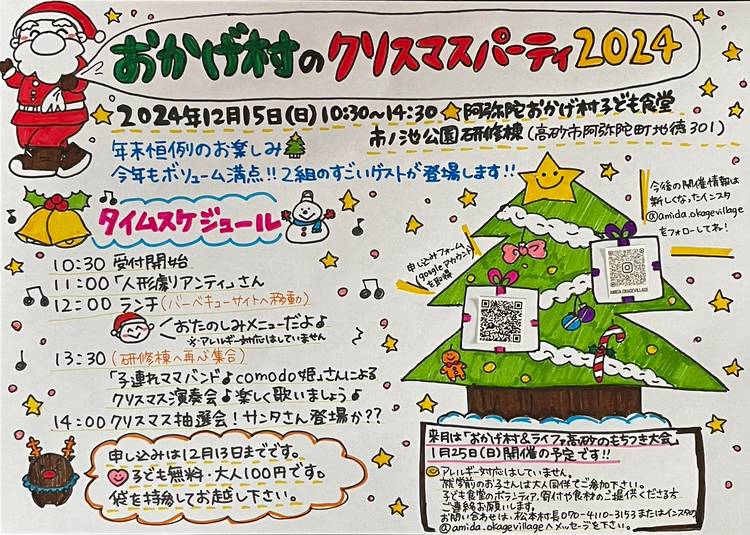 おかげ村のクリスマスパーティ2024
2024年12月15日(日)10:30~14:30 阿弥陀おかげ村子ども食堂
市ノ池公園研修棟(高砂市阿弥陀町地徳301)
年末恒例のお楽しみ
今年もボリューム満点!!2組のすごいゲストが登場します!!
タイムスケジュール
10:30 受付開始
11:00「人形劇りアンティ」さん
12:00 ランチ(バーベキューサイトへ移動)
おたのしみメニューだよ♪
※アレルギー対応はしていません
13:30(研修棟へ再び集合)
「子連れママバンド♪comodo姫」さんによる
クリスマス演奏会♪楽しく歌いましょう♪
14:00 クリスマス抽選会!サンタさん登場か??
申し込みは12月13日までです。
子ども無料・大人100円です。
袋を持参してお越し下さい。
今後の開催情報は
新しくなったインスタ
@amida.okagevillage
をフォローしてね!
申し込みフォーム
(googleアカウント)
を取得
AMIDA.OKAGEVILLAGE
来月は「おかげ村&ライフ高砂のもちつき大会」
1月25日(日)開催の予定です!!
アレルギー対応はしていません。
就学前のお子さんは大人同伴でご参加下さい。
子ども食堂のボランティア、寄付や食材のご提供くださる方
ご連絡お願いします。
お問い合わせは、松本村長070-4110-3153またはインスタの
@amida.okagevillageへメッセージを下さい。